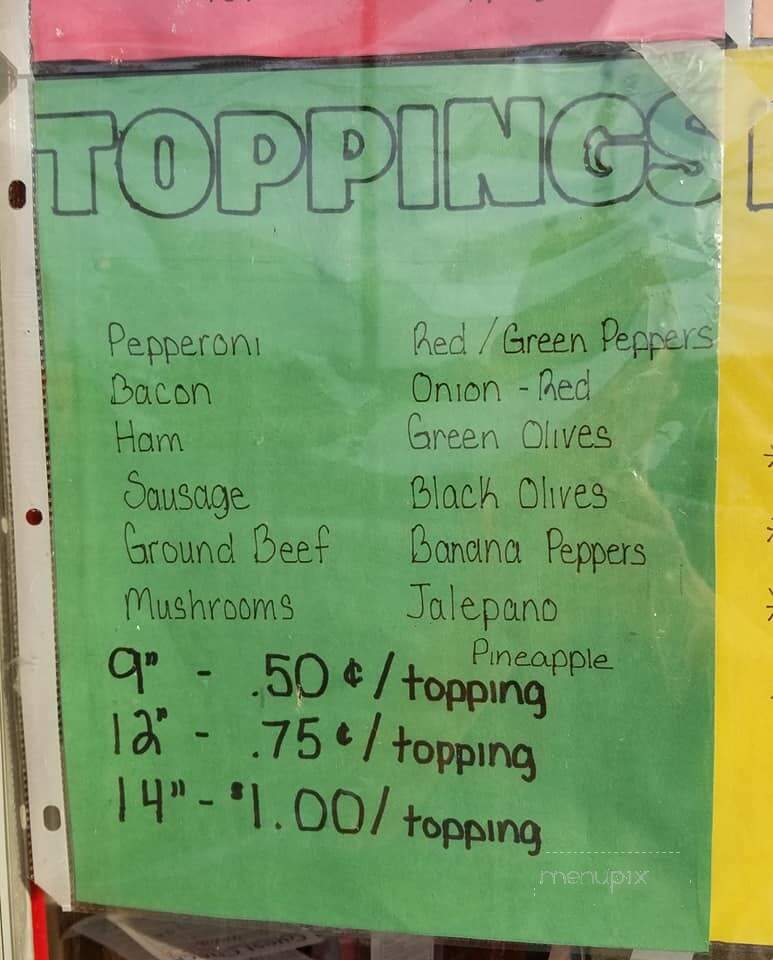 TOPPINGS
Pepperoni
Bacon
Ham
Sausage
Ground Beef
Mushrooms
Red / Green Peppers
Onion - Red
Green Olives
Black Olives
Banana Peppers
Jalepano
Pineapple
9" - .50¢/topping
12" - .75¢/topping
14" - $1.00/topping
menupix